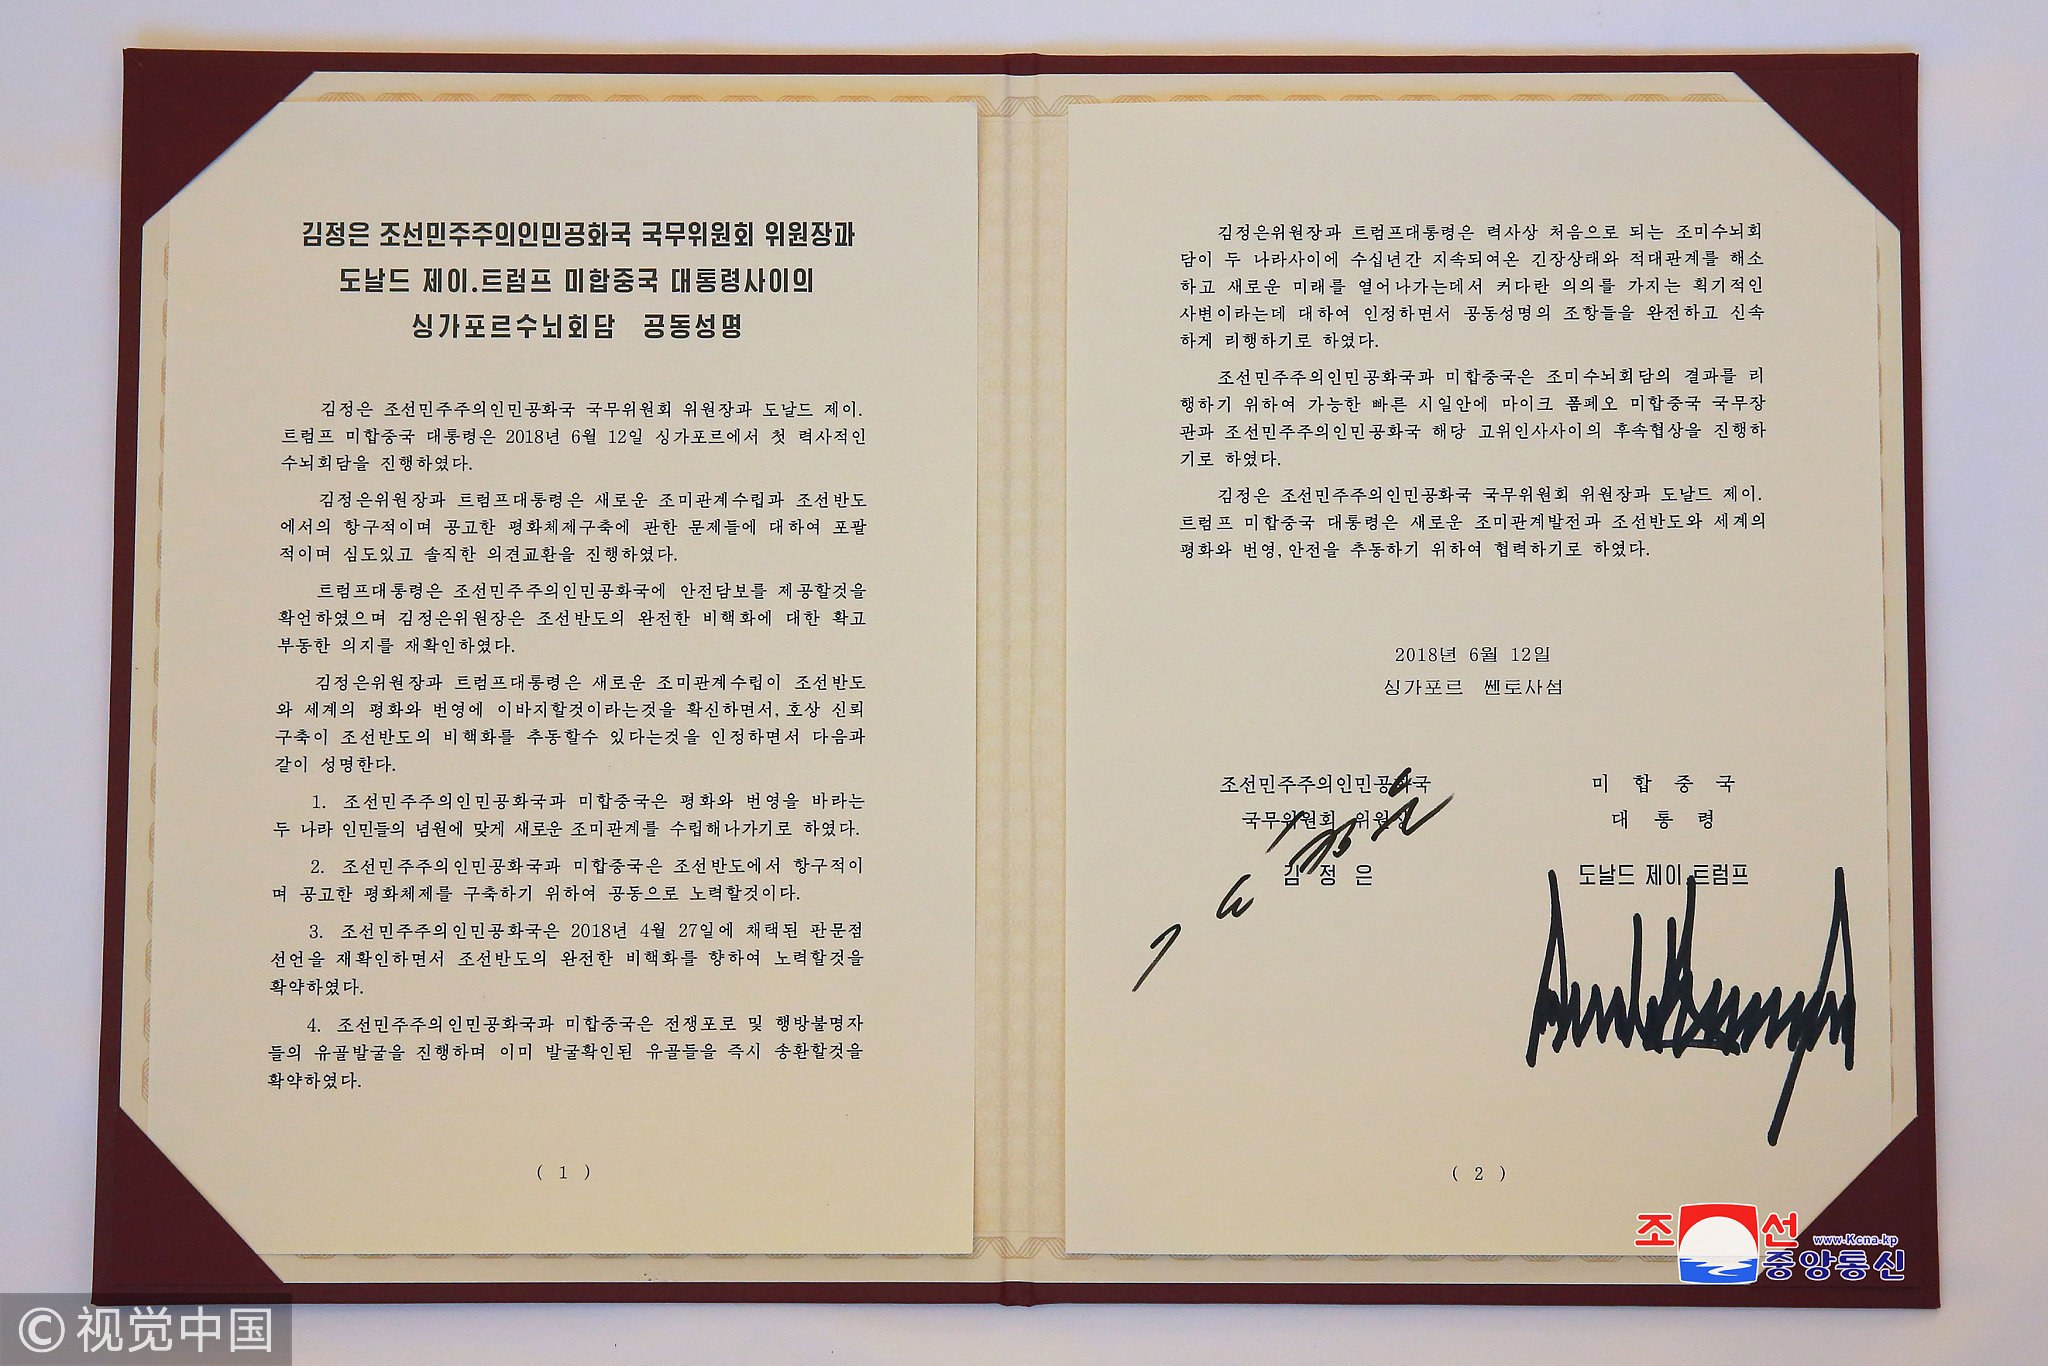 김정은 조선민주주의인민공화국 국무위원회 위원장과
도날드 제이.트럼프 미합중국 대통령사이의
싱가포르수뇌회담 공동성명
김정은 조선민주주의인민공화국 국무위원회 위원장과 도날드 제이.
트럼프 미합중국 대통령은 2018년 6월 12일 싱가포르에서 첫 력사적인
수뇌회담을 진행하였다.
김정은위원장과 트럼프대통령은 새로운 조미관계수립과 조선반도
에서의 항구적이며 공고한 평화체제구축에 관한 문제들에 대하여 포괄
적이며 심도있고 솔직한 의견교환을 진행하였다.
트럼프대통령은 조선민주주의인민공화국에 안전담보를 제공할것을
확언하였으며 김정은위원장은 조선반도의 완전한 비핵화에 대한 확고
부동한 의지를 재확인하였다.
김정은위원장과 트럼프대통령은 새로운 조미관계수립이 조선반도
와 세계의 평화와 번영에 이바지할것이라는것을 확신하면서, 호상 신뢰
구축이 조선반도의 비핵화를 추동할수 있다는것을 인정하면서 다음과
같이 성명한다.
1. 조선민주주의인민공화국과 미합중국은 평화와 번영을 바라는
두 나라 인민들의 념원에 맞게 새로운 조미관계를 수립해나가기로 하였다.
2. 조선민주주의인민공화국과 미합중국은 조선반도에서 항구적이
며 공고한 평화체제를 구축하기 위하여 공동으로 노력할것이다.
3. 조선민주주의인민공화국은 2018년 4월 27일에 채택된 판문점
선언을 재확인하면서 조선반도의 완전한 비핵화를 향하여 노력할것을
확약하였다.
4. 조선민주주의인민공화국과 미합중국은 전쟁포로 및 행방불명자
들의 유골발굴을 진행하며 이미 발굴확인된 유골들을 즉시 송환할것을
확약하였다.
( 1 )
김정은위원장과 트럼프대통령은 력사상 처음으로 되는 조미수뇌회
담이 두 나라사이에 수십년간 지속되여온 긴장상태와 적대관계를 해소
하고 새로운 미래를 열어나가는데서 커다란 의의를 가지는 획기적인
사변이라는데 대하여 인정하면서 공동성명의 조항들을 완전하고 신속
하게 리행하기로 하였다.
조선민주주의인민공화국과 미합중국은 조미수뇌회담의 결과를 리
행하기 위하여 가능한 빠른 시일안에 마이크 폼페오 미합중국 국무장
관과 조선민주주의인민공화국 해당 고위인사사이의 후속협상을 진행하
기로 하였다.
김정은 조선민주주의인민공화국 국무위원회 위원장과 도날드 제이.
트럼프 미합중국 대통령은 새로운 조미관계발전과 조선반도와 세계의
평화와 번영, 안전을 추동하기 위하여 협력하기로 하였다.
2018년 6월 12일
싱가포르 쎈토사섬
조선민주주의인민공화국
국무위원회 위원장
김 정 은
미 합 중 국
대 통 령
도날드 제이.트럼프
( 2 )
조선
www.Kcna.kp
중앙통신
© 视觉中国